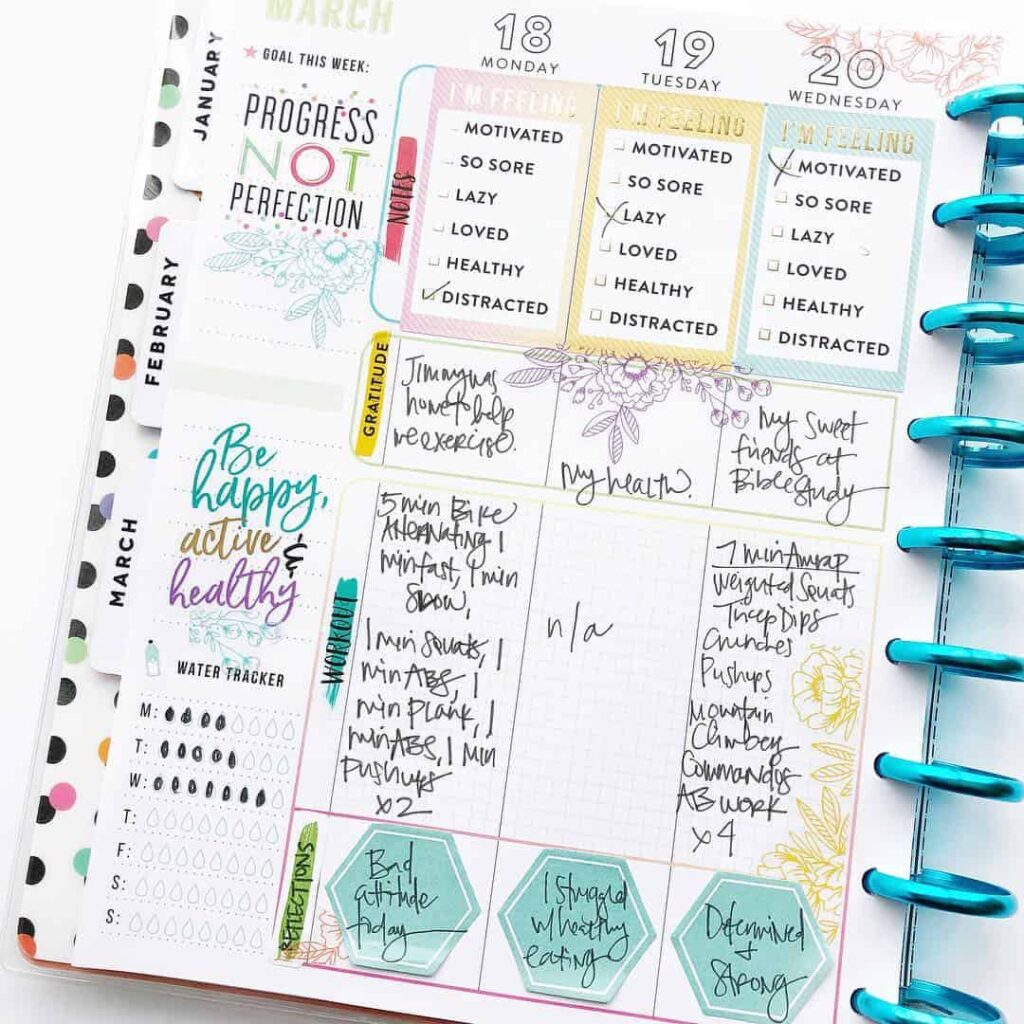 MARCH
JANUARY
FEBRUARY
MARCH
GOAL THIS WEEK:
PROGRESS
NOT
PERFECTION
Be
happy,
active &
healthy
WATER TRACKER
M:
T:
W:
T:
F:
S:
S:
18
MONDAY
19
TUESDAY
20
WEDNESDAY
NOTES
I'M FEELING
MOTIVATED
SO SORE
LAZY
LOVED
HEALTHY
DISTRACTED
I'M FEELING
MOTIVATED
SO SORE
LAZY
LOVED
HEALTHY
DISTRACTED
I'M FEELING
MOTIVATED
SO SORE
LAZY
LOVED
HEALTHY
DISTRACTED
GRATITUDE
Jimmy was
home to help
me exercise.
My health.
My sweet
friends at
Bible study
WORKOUT
5 min Bike
Alternating 1
min fast, 1 min
Slow,
1 min Squats, 1
min ABS, 1
min Plank, 1
min ABS, 1 min
Pushups
x2
n/a
7 min Amrap
Weighted Squats
Tricep Dips
Crunches
Pushups
Mountain
Climbers
Commandos
AB WORK
x4
REFLECTIONS
Bad
attitude
today
I struggled
w/ healthy
eating
Determined
+
Strong